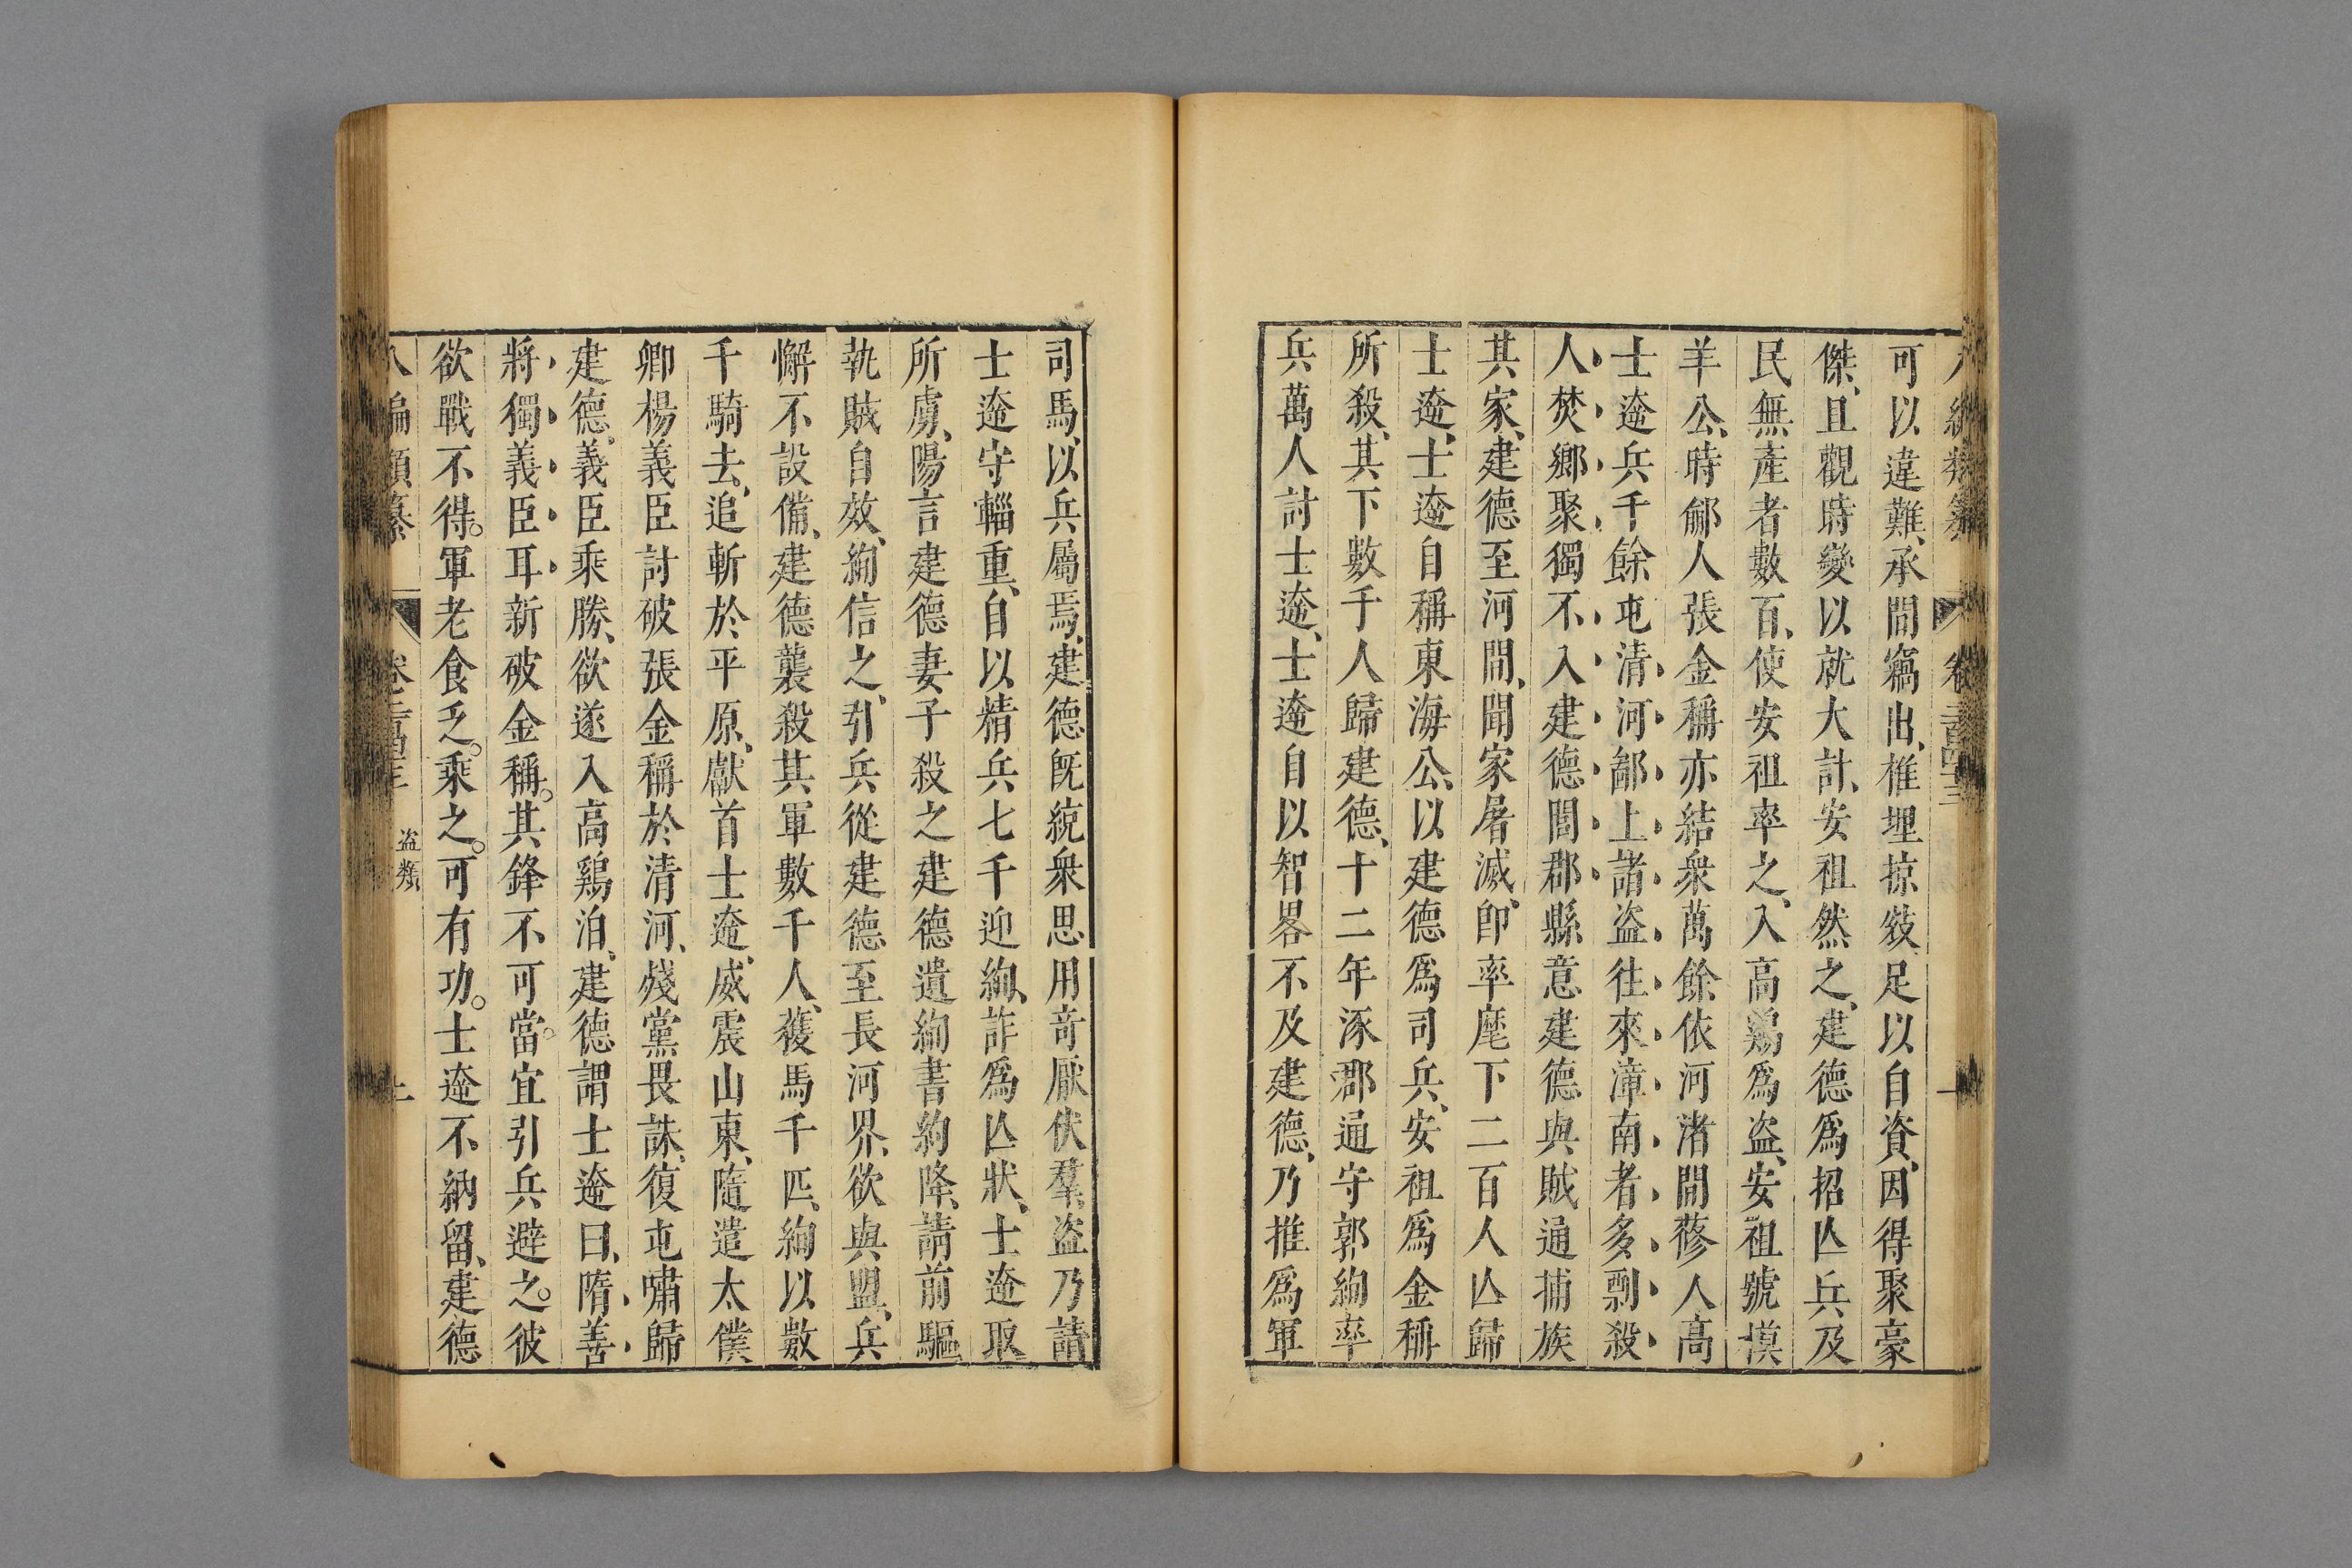 可以違難、承間竊出、椎埋掠敓、足以自資、因得聚豪
傑、且觀時變以就大計、安祖然之、建德爲招亾兵及
民無產者數百、使安祖率之、入高鷄爲盜、安祖號摸
羊公、時鄃人張金稱亦結衆萬餘依河渚間、蓨人高
士達兵千餘屯清河鄃上、諸盜往來漳南者多剽殺
人焚鄉聚獨不入建德閭郡縣意建德與賊通捕族
其家、建德至河間、聞家屠滅、卽率麾下二百人亾歸
士達、士達自稱東海公、以建德爲司兵、安祖爲金稱
所殺、其下數千人歸建德、十二年涿郡通守郭絢率
兵萬人討士達、士達自以智畧不及建德、乃推爲軍
司馬、以兵屬焉、建德旣統衆思用奇厭伏羣盜乃請
士達守輜重、自以精兵七千迎絢、詐爲亾狀、士達取
所虜、陽言建德妻子殺之建德遺絢書約降、請前驅
執賊自效、絢信之、引兵從建德至長河界、欲與盟、兵
懈不設備、建德襲殺其軍數千人、獲馬千匹、絢以數
千騎去、追斬於平原、獻首士達、威震山東、隨遣太僕
卿楊義臣討破張金稱於清河、殘黨畏誅、復屯嘯歸
建德、義臣乘勝、欲遂入高鷄泊、建德謂士達曰、隋善
將獨義臣耳新破金稱。其鋒不可當。宜引兵避之。彼
欲戰不得。軍老食乏。乘之。可有功。士達不納留、建德
八編類纂
盜類